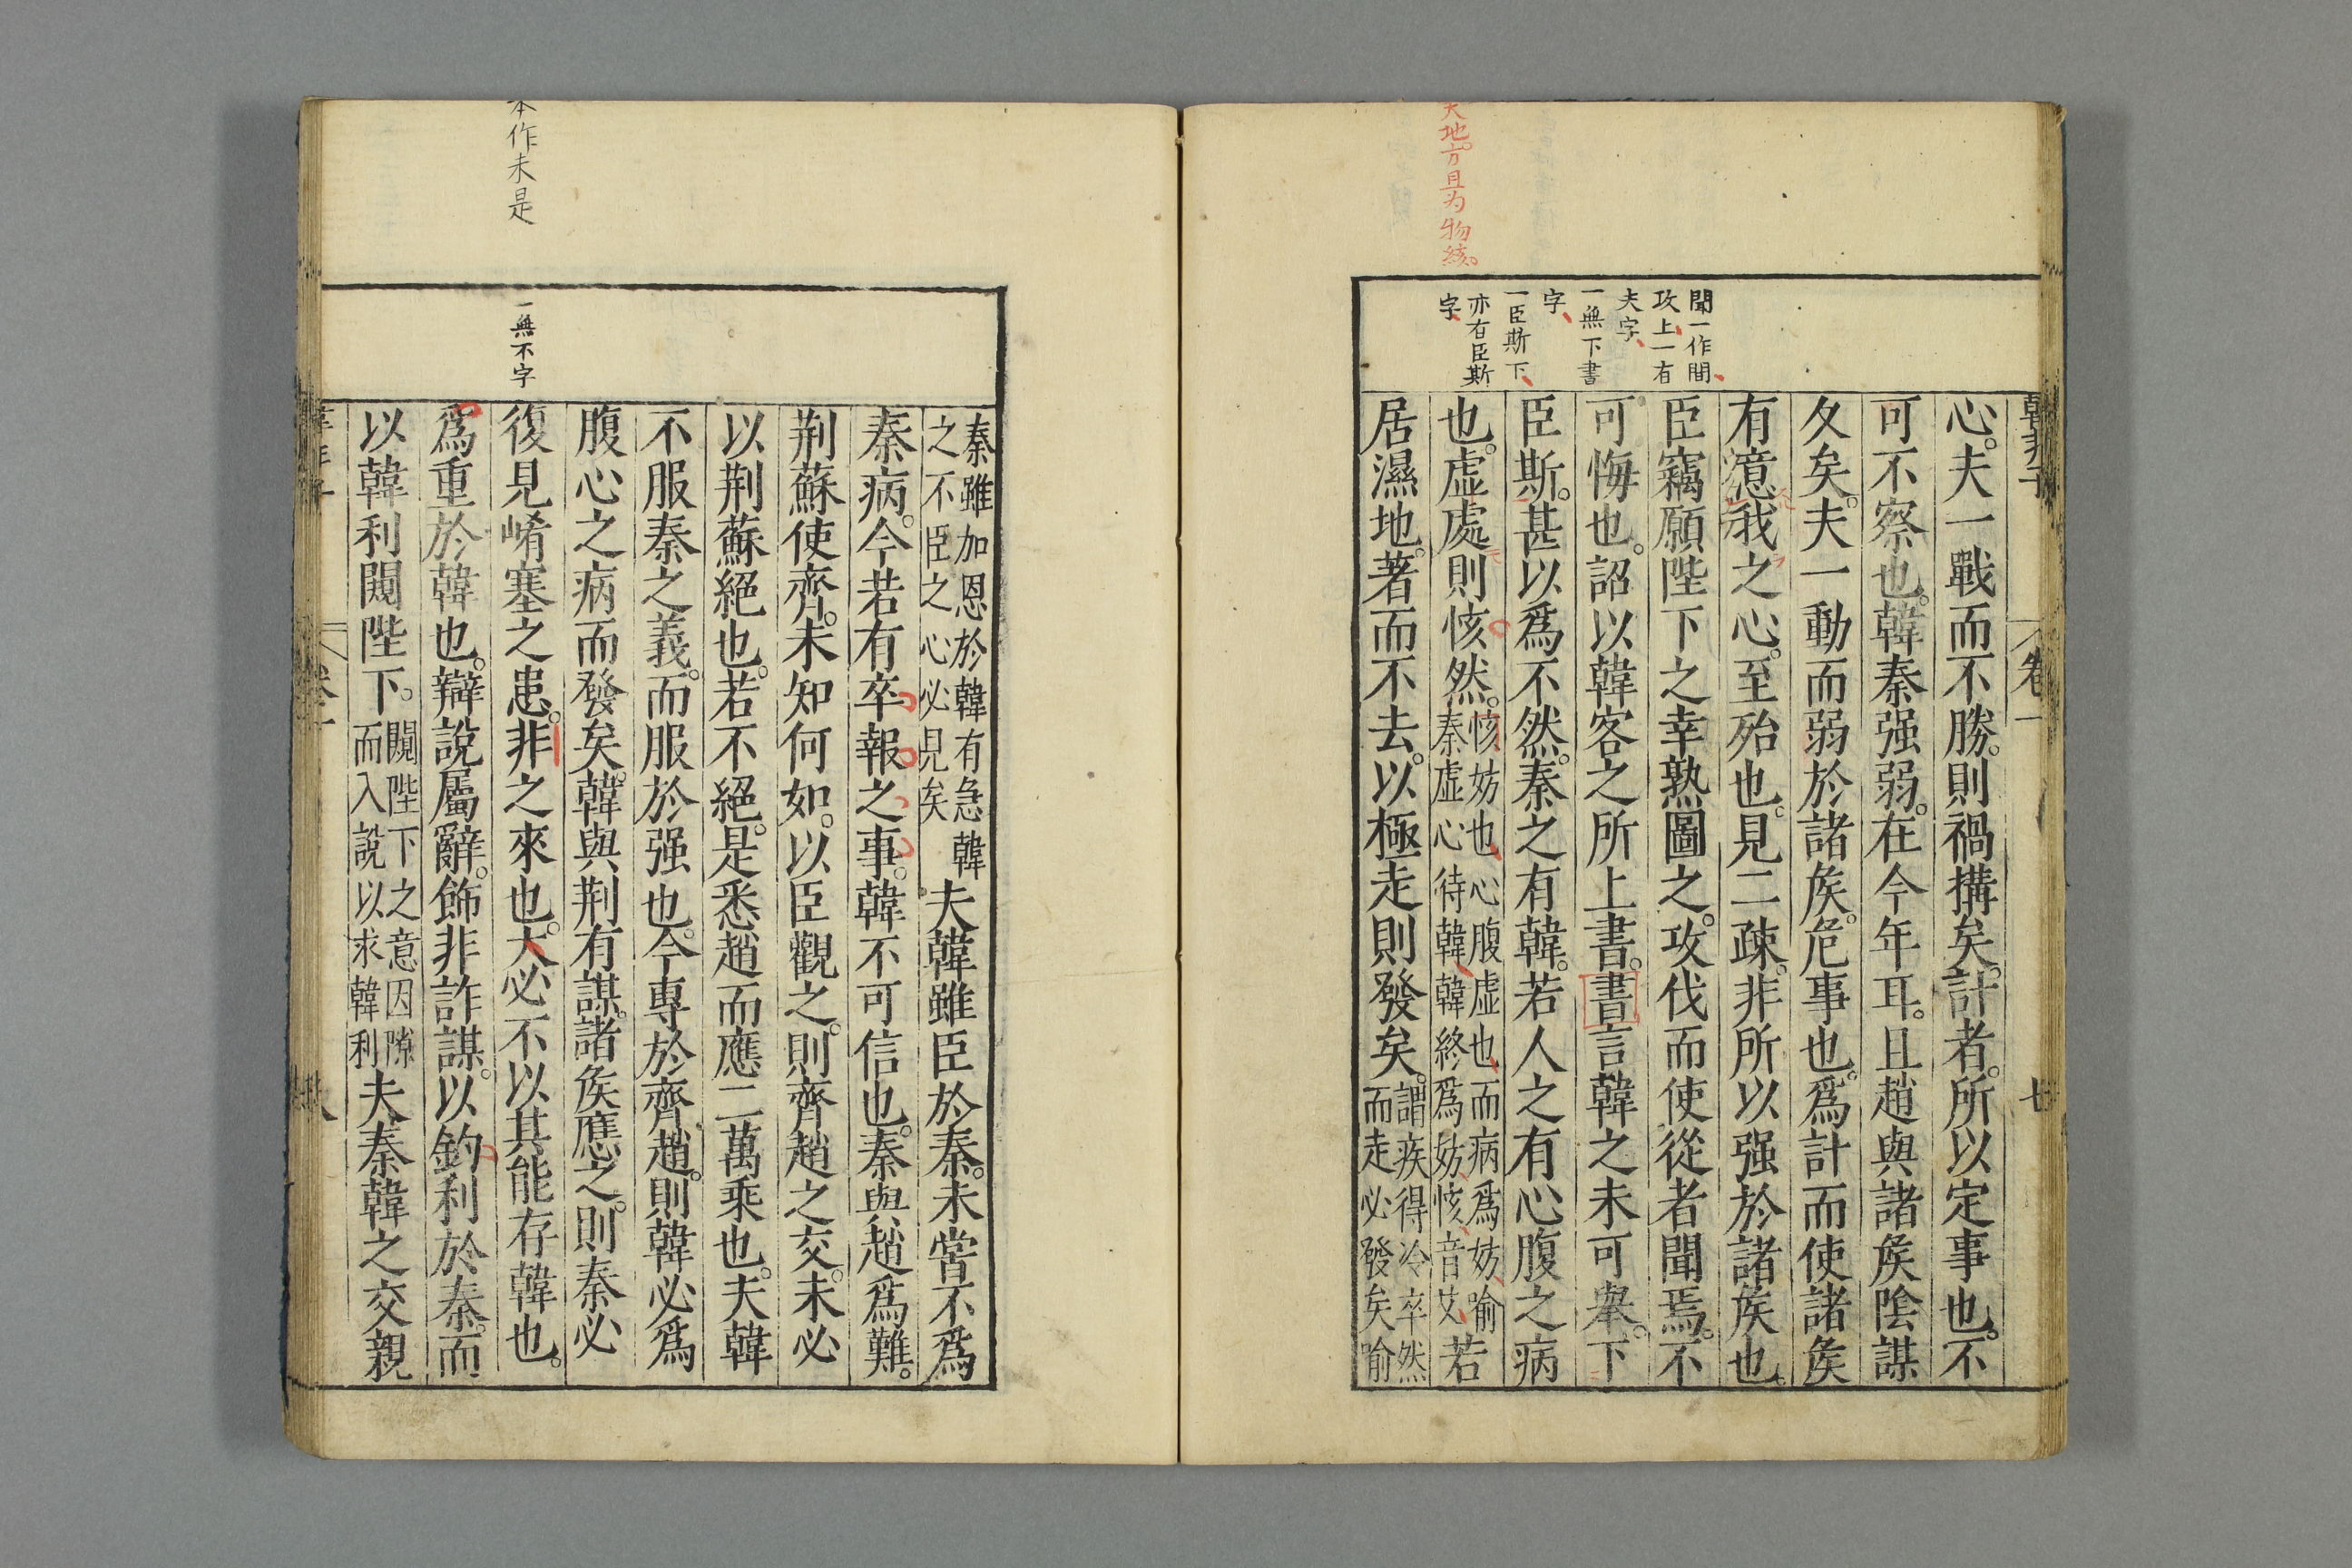 韓非子 卷一 七
天地方且为物絯
聞一作間
攻上一有
夫字
一無下書
字
一臣斯下
亦有臣斯
字
心。夫一戰而不勝。則禍搆矣。計者。所以定事也。不
可不察也。韓秦强弱。在今年耳。且趙與諸矦陰謀
久矣。夫一動而弱於諸矦。危事也。爲計而使諸矦
有意我之心。至殆也。見二疎。非所以强於諸矦也。
臣竊願陛下之幸熟圖之。攻伐而使從者聞焉。不
可悔也。詔以韓客之所上書。書言韓之未可舉。下
臣斯。甚以爲不然。秦之有韓。若人之有心腹之病
也。虛處則㤥然。㤥妨也心腹虛也而病爲妨喻秦虛心待韓韓終爲妨㤥音艾若
居濕地。著而不去。以極走則發矣。謂疾得冷卒然而走必發矣喻
本作未是
一無不字
秦雖加恩於韓有急韓之不臣之心必見矣夫韓雖臣於秦。未嘗不爲
秦病。今若有卒報之事。韓不可信也。秦與趙爲難。
荆蘇使齊。未知何如。以臣觀之。則齊趙之交。未必
以荆蘇絕也。若不絕。是悉趙而應二萬乘也。夫韓
不服秦之義。而服於强也。今專於齊趙。則韓必爲
腹心之病而發矣。韓與荆有謀。諸矦應之。則秦必
復見崤塞之患。非之來也。大必不以其能存韓也。
爲重於韓也。辯說屬辭。飾非詐謀。以釣利於秦。而
以韓利闚陛下。闚陛下之意因隙而入說以求韓利夫秦韓之交親
韓非子 卷一 八